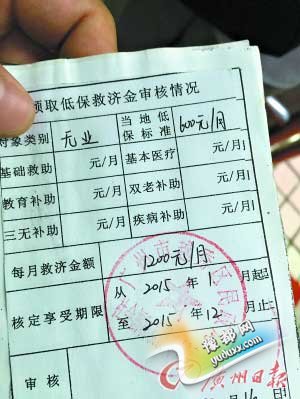 领取低保救济金审核情况
对象类别 无业 当地低保标准 600元/月
基础救助 元/月 基本医疗 元/月
教育补助 元/月 双老补助 元/月
三无补助 元/月 疾病补助 元/月
每月救济金额 1200元/月
核定享受期限 从 2015 年 1 月起
至 2015 年 12 月止
审核
豫都网
yuduxx.com
广州日报